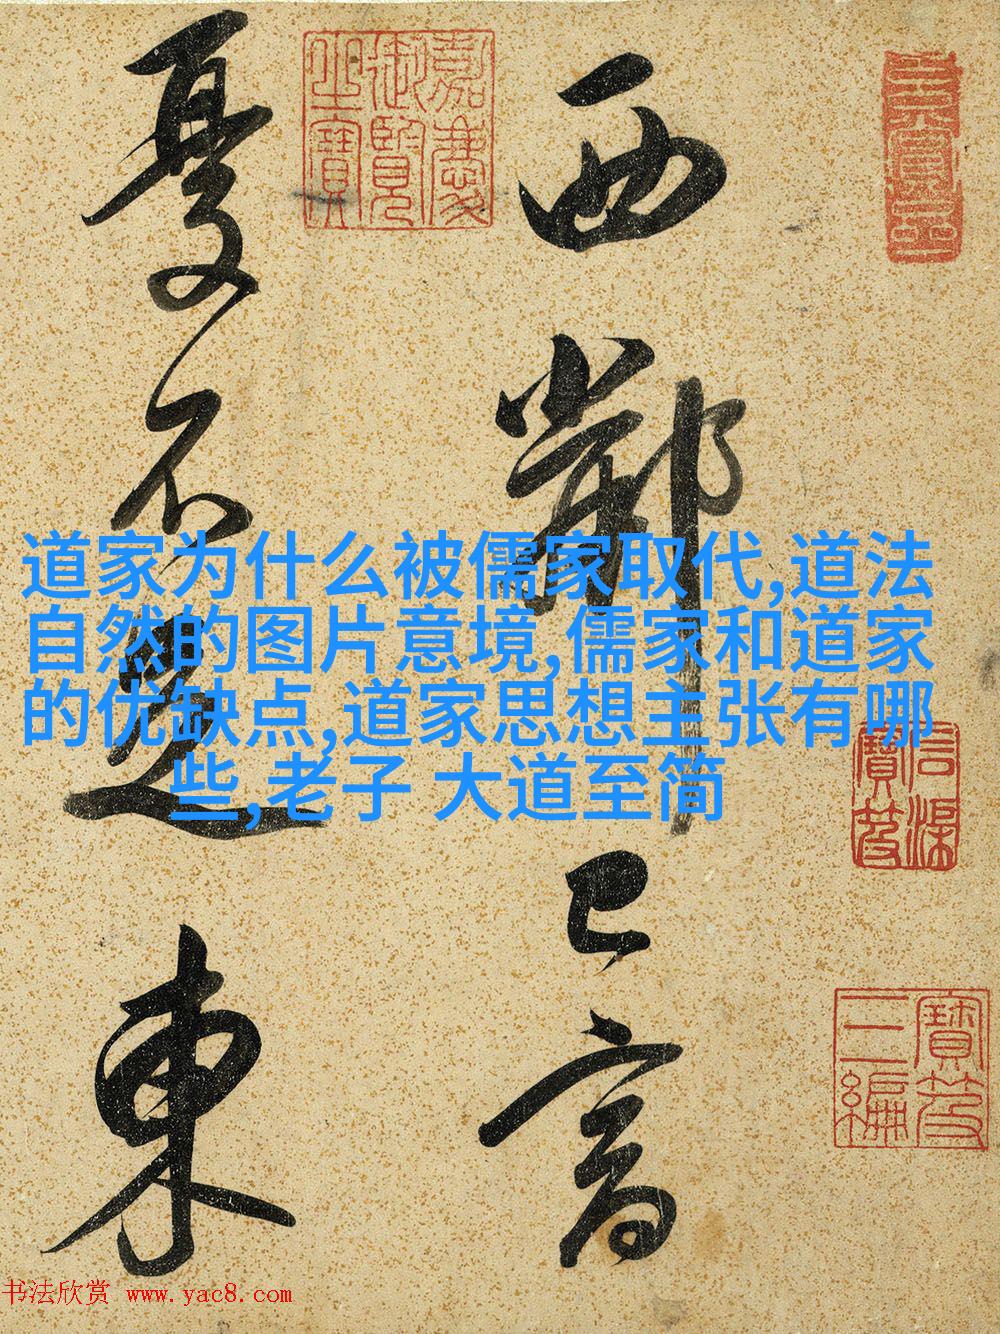 西鄰已富
憂不足東
嘉慶
御覽
之寶
道家为什么被儒家取代,道法
自然的图片意境,儒家和道家
的优缺点,道家思想主张有哪
些,老子 大道至简
寶笈
三編
书法欣赏 www.yac8.com